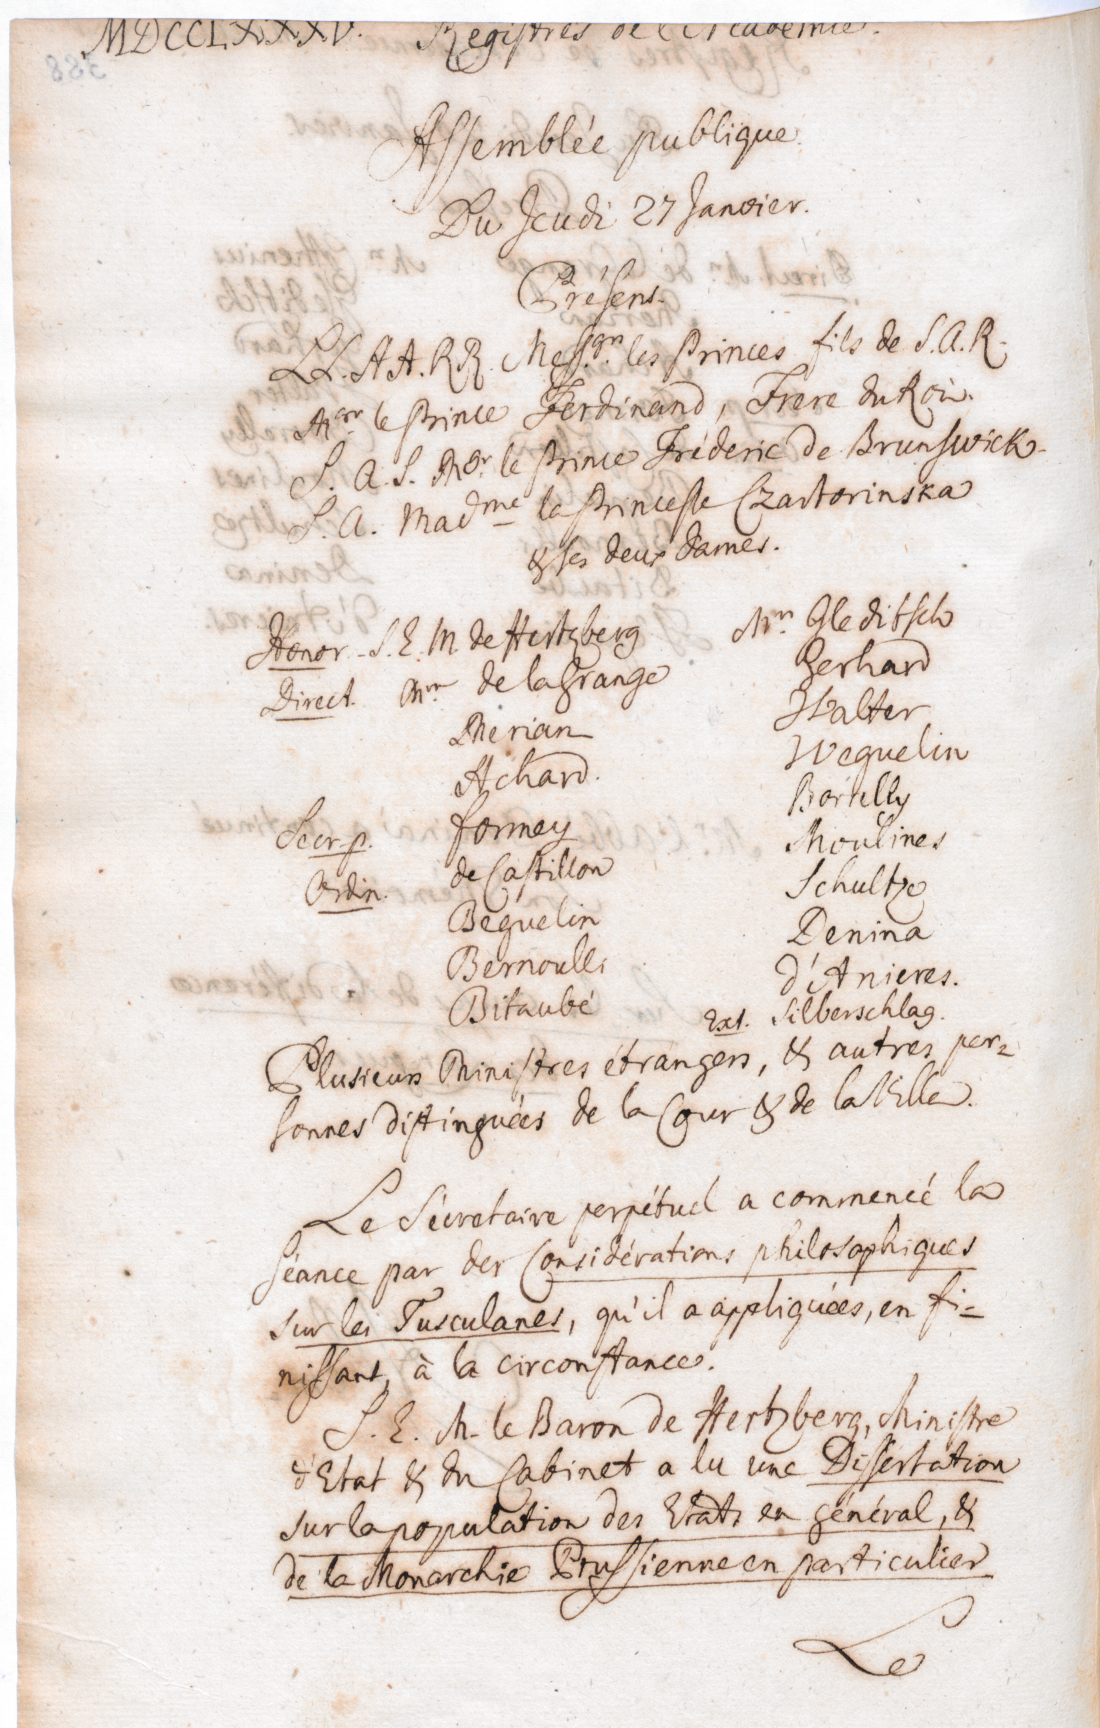 MDCCLXXXV. Registres de l'Academie.
Assemblée publique
Du Jeudi 27 Janvier.
Présens.
LL. AA. RR. Mess.grs les Princes fils de S. A. R.
Mgr le Prince Ferdinand, Frere du Roi.
S. A. S. Mgr le Prince Fréderic de Brunswick.
S. A. Mad.me la Princesse Czartorinska
& ses deux Dames.
Honor. S. E. M. de Hertzberg
Direct. Mrs de la Grange
Merian
Achard.
Secr. p. Formey
Ordin. de Castillon
Beguelin
Bernoulli
Bitaubé
Mrs. Gleditsch
Gerhard
Walter
Weguelin
Borrelly
Moulines
Schultze
Denina
d'Anieres.
Ext. Silberschlag.
Plusieurs Ministres étrangers, & autres per=
sonnes distinguées de la Cour & de la Ville.
Le Sécretaire perpétuel a commencé la
séance par des Considérations philosophiques
sur les Tusculanes, qu'il a appliquées, en fi=
nissant, à la circonstance.
S. E. M. le Baron de Hertzberg, Ministre
d'Etat & du Cabinet a lu une Dissertation
sur la population des Etats en général, &
de la Monarchie Prussienne en particulier
Le